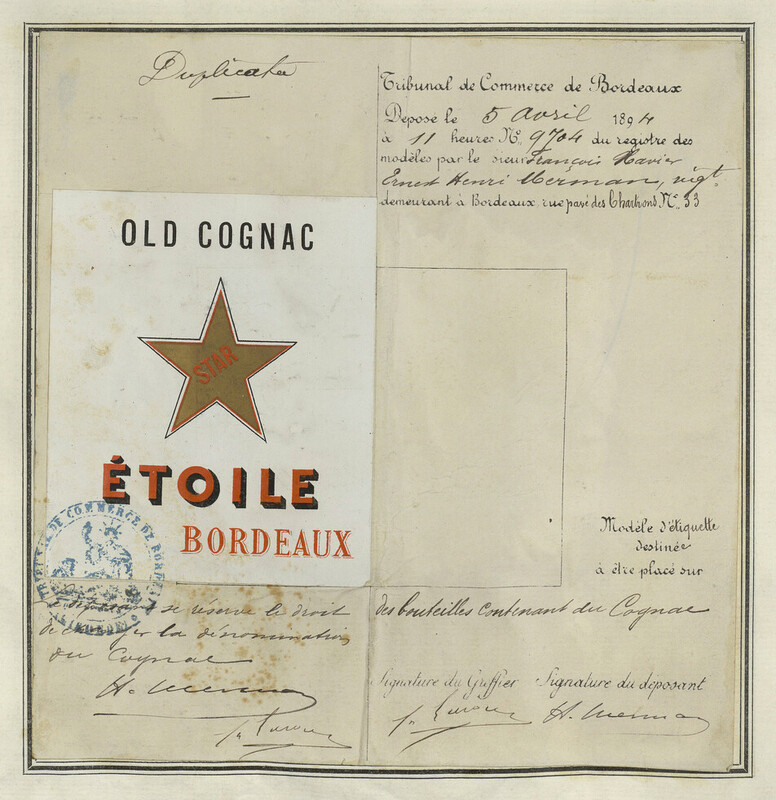 Duplicata
Tribunal de Commerce de Bordeaux
Déposé le 5 avril 1894
à 11 heures N° 9704 du registre des
modèles par le sieur François Xavier
Ernest Henri Merman, négt.
demeurant à Bordeaux, rue pavé des Chartrons N° 33
OLD COGNAC
STAR
ÉTOILE
BORDEAUX
TRIBUNAL DE COMMERCE DE BORDEAUX
(GIRONDE)
Modèle d'étiquette
destinée
à être placé sur
des bouteilles contenant du Cognac
Le déposant se réserve le droit
de changer la dénomination
du Cognac
H. Merman
Signature du Greffier Signature du déposant
H. Merman